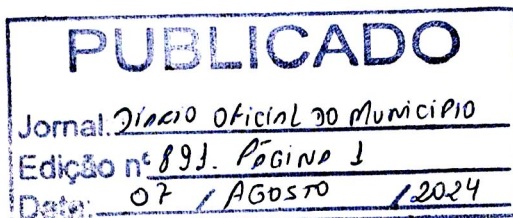 PUBLICADO
Jornal. Diário Oficial do Município
Edição nº 891. Página 1
Data: 07 / AGOSTO / 2024